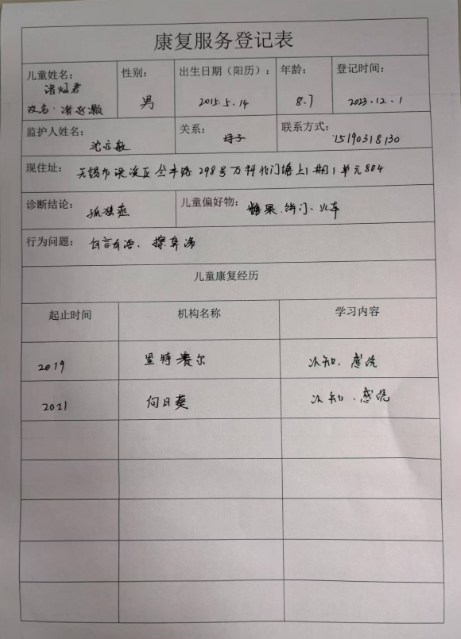 康复服务登记表
儿童姓名：
性别：男
出生日期（阳历）：2015.5.14
年龄：8.7
登记时间：2023.12.1
改名：
监护人姓名：
关系：母子
联系方式：15190318130
现住址：无锡市梁溪区 路298号万科北门塘上1期1单元804
诊断结论：孤独症
儿童偏好物：糖果、 门、火车
行为问题：自言自语、
儿童康复经历
起止时间 机构名称 学习内容
2019 星特赛尔 认知、感统
2021 向日葵 认知、感统